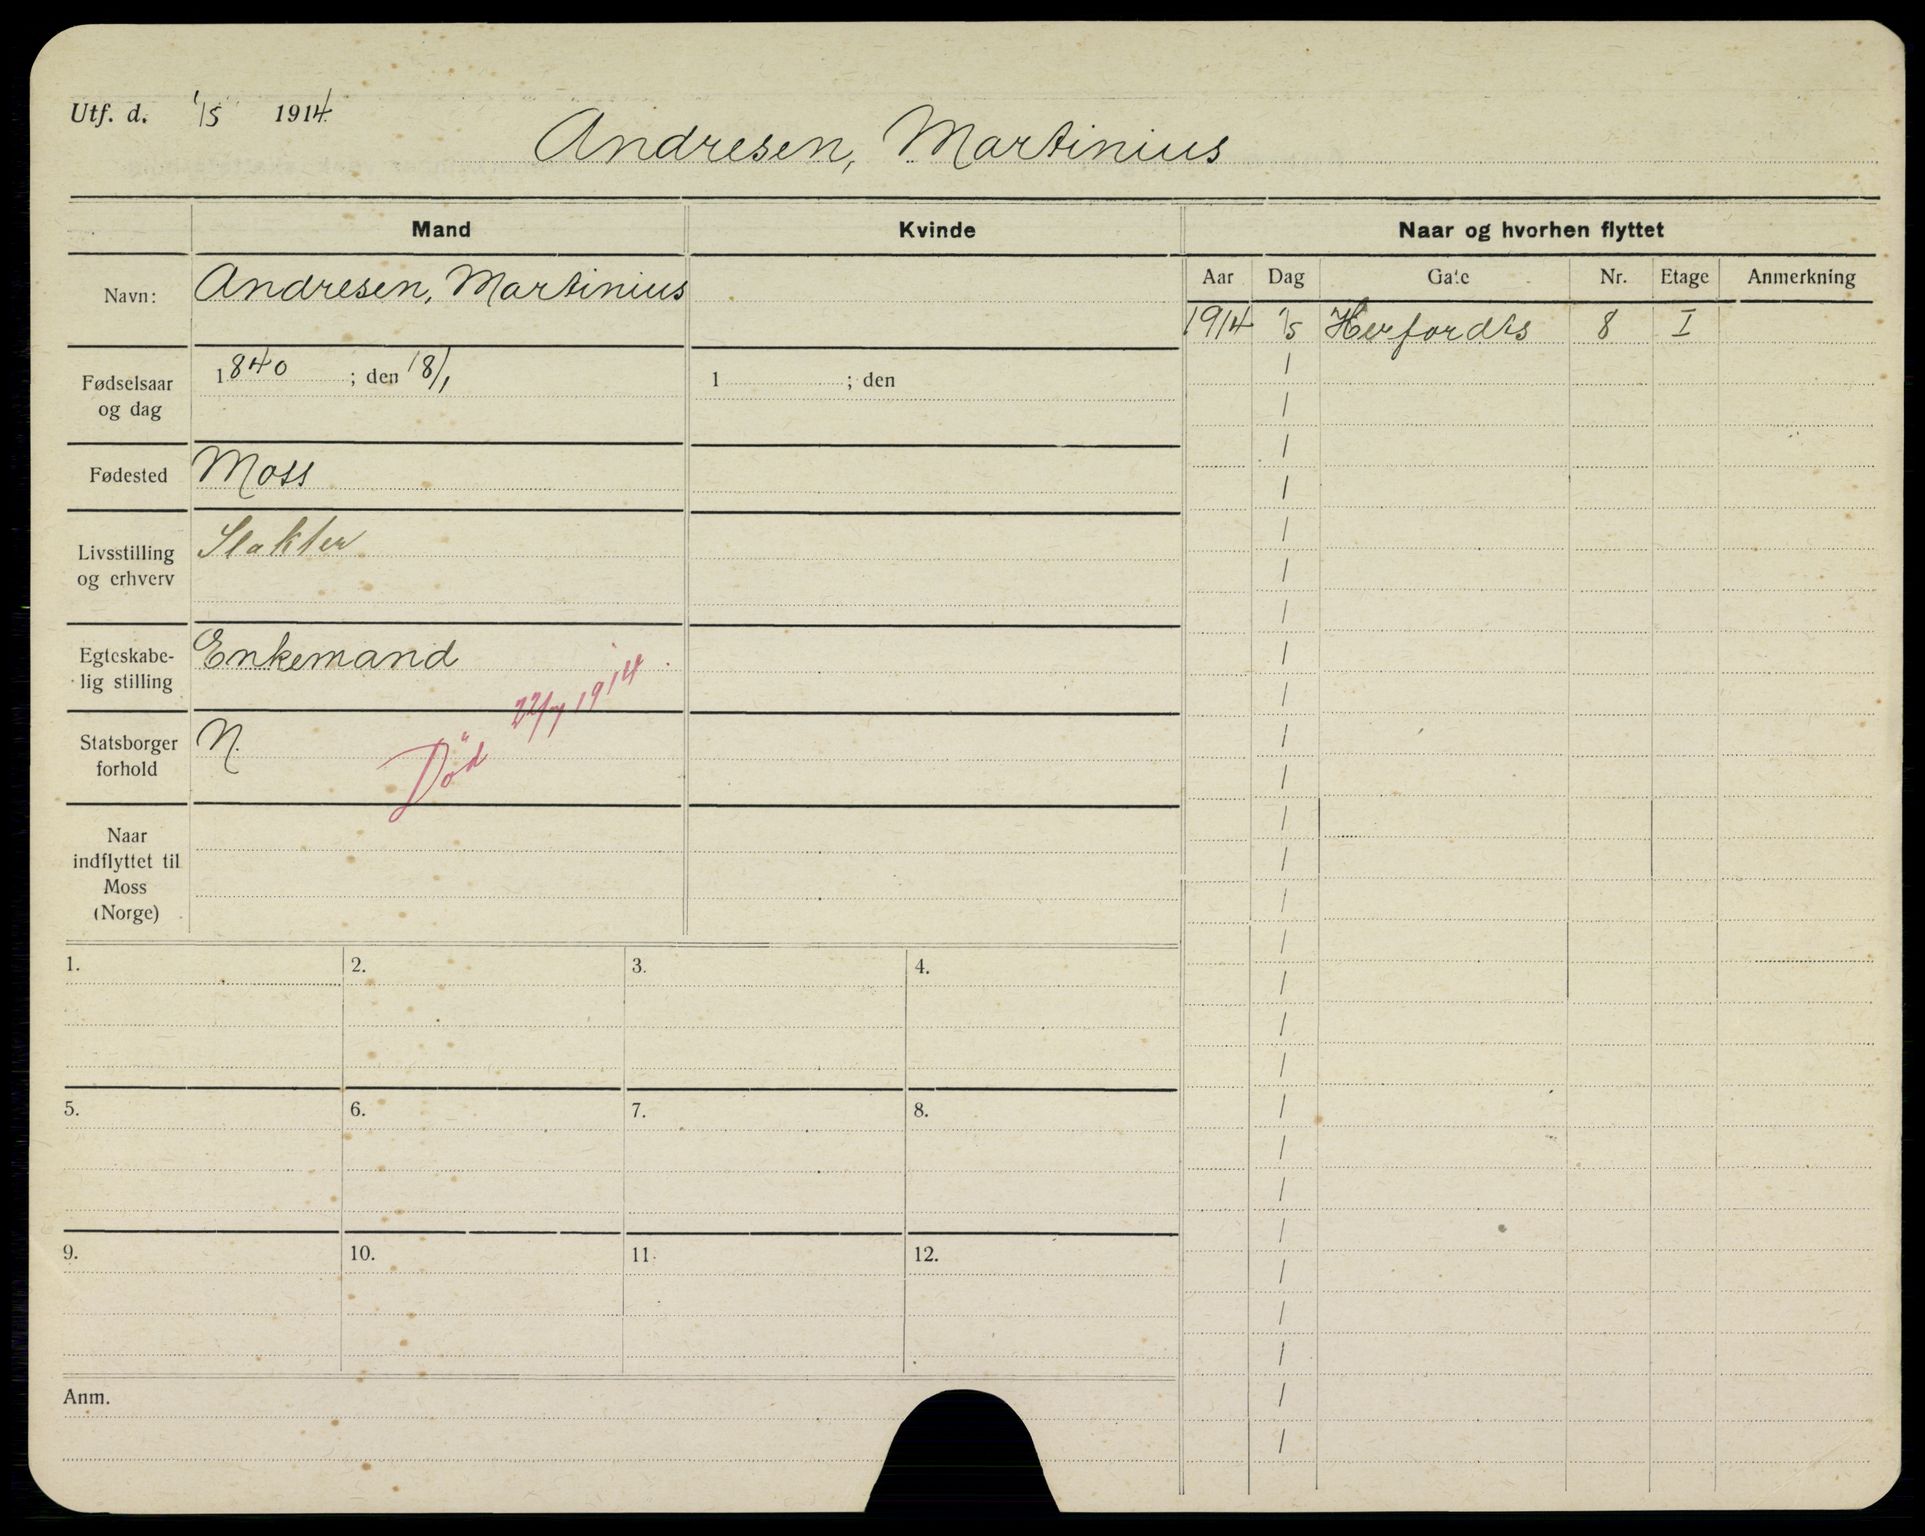 Utf. d. 1/5 1914.
Andresen, Martinius
Mand Kvinde Naar og hvorhen flyttet
Aar Dag Gate Nr. Etage Anmerkning
Navn: Andresen, Martinius
1914 1/5 Herfordts 8 I
Fødselsaar og dag 1840 ; den 18/1 1 ; den
Fødested Moss
Livsstilling og erhverv Slakter
Egteskabe-
lig stilling Enkemand
Statsborger forhold N.
Død 22/7 1914.
Naar
indflyttet til
Moss
(Norge)
1. 2. 3. 4.
5. 6. 7. 8.
9. 10. 11. 12.
Anm.